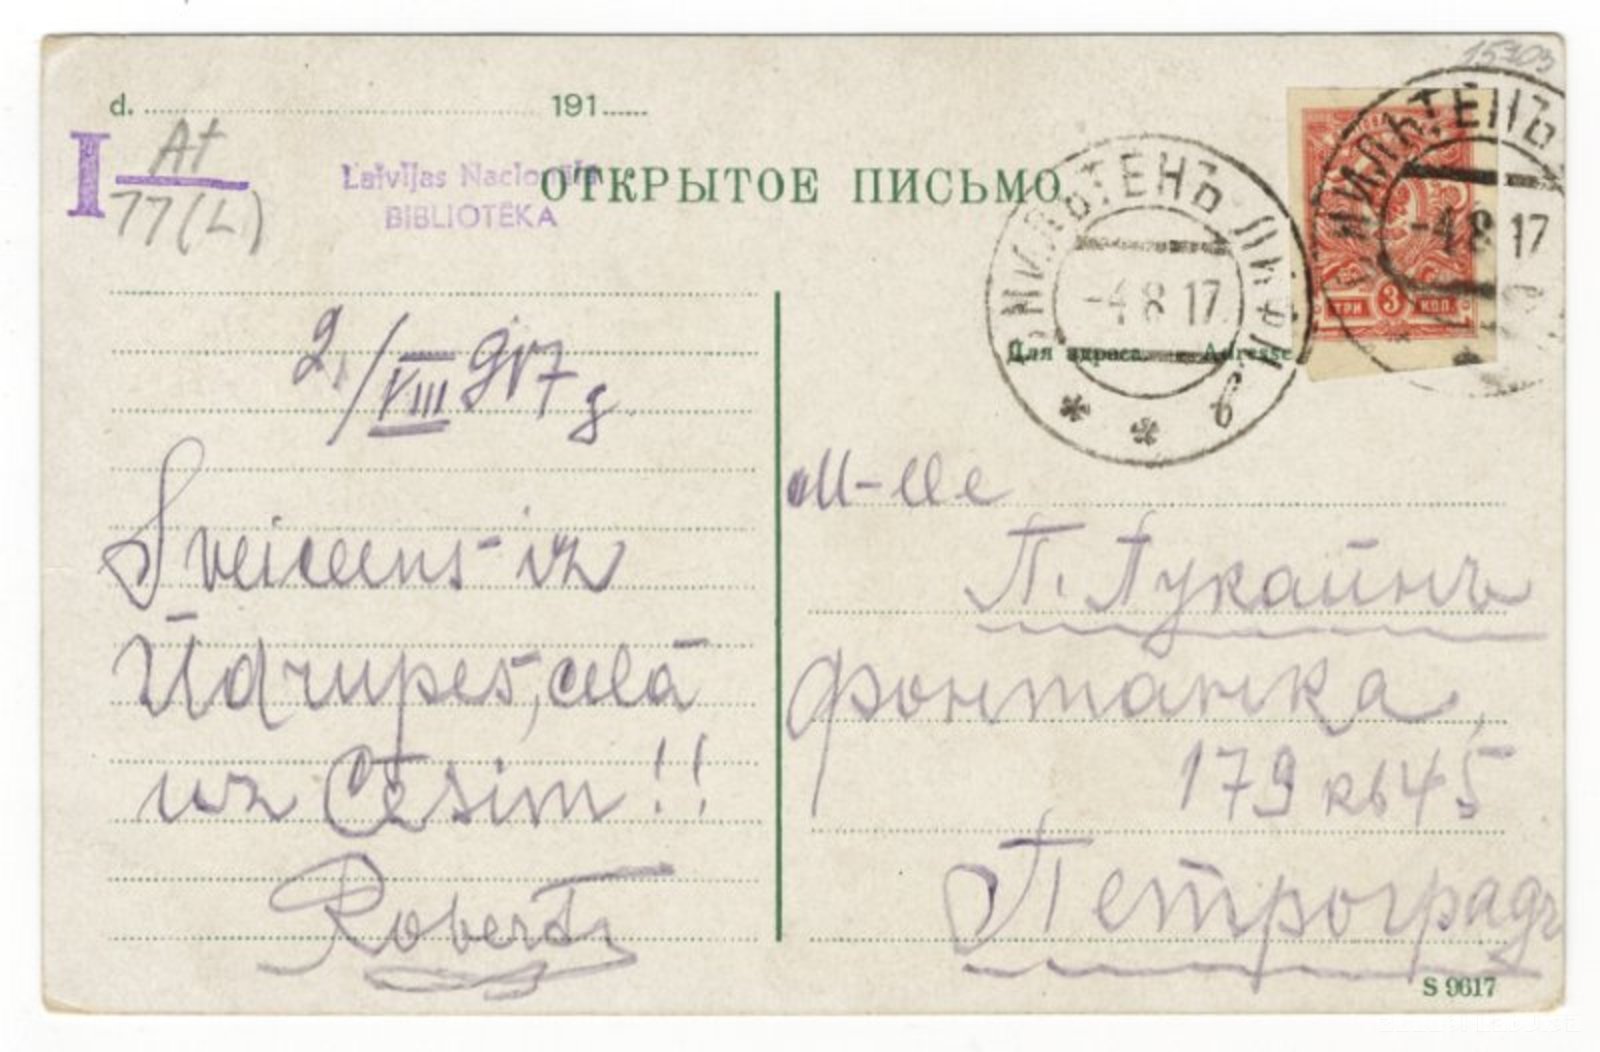 15303
d. 191
I At
77(L)
Latvijas Nacionālā
BIBLIOTĒKA
ОТКРЫТОЕ ПИСЬМО
-4 8 17
-4 8 17
ТРИ 3 КОП
Для адреса. Adresse
2./VIII 917 g.
Sveiceens iz
Ūdrupes, ceļā
uz Cēsim!!
Roberts
M-lle
П. Лукаинъ
Фонтанка,
179 кв 45
Петроградъ
S 9617